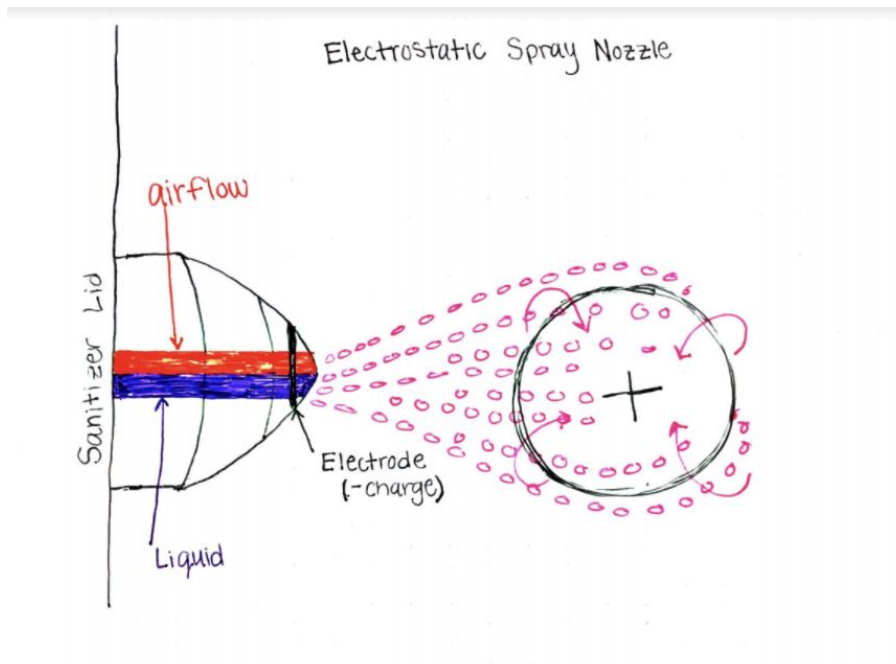 Electrostatic Spray Nozzle
airflow
Sanitizer Lid
Electrode
(-charge)
Liquid
+